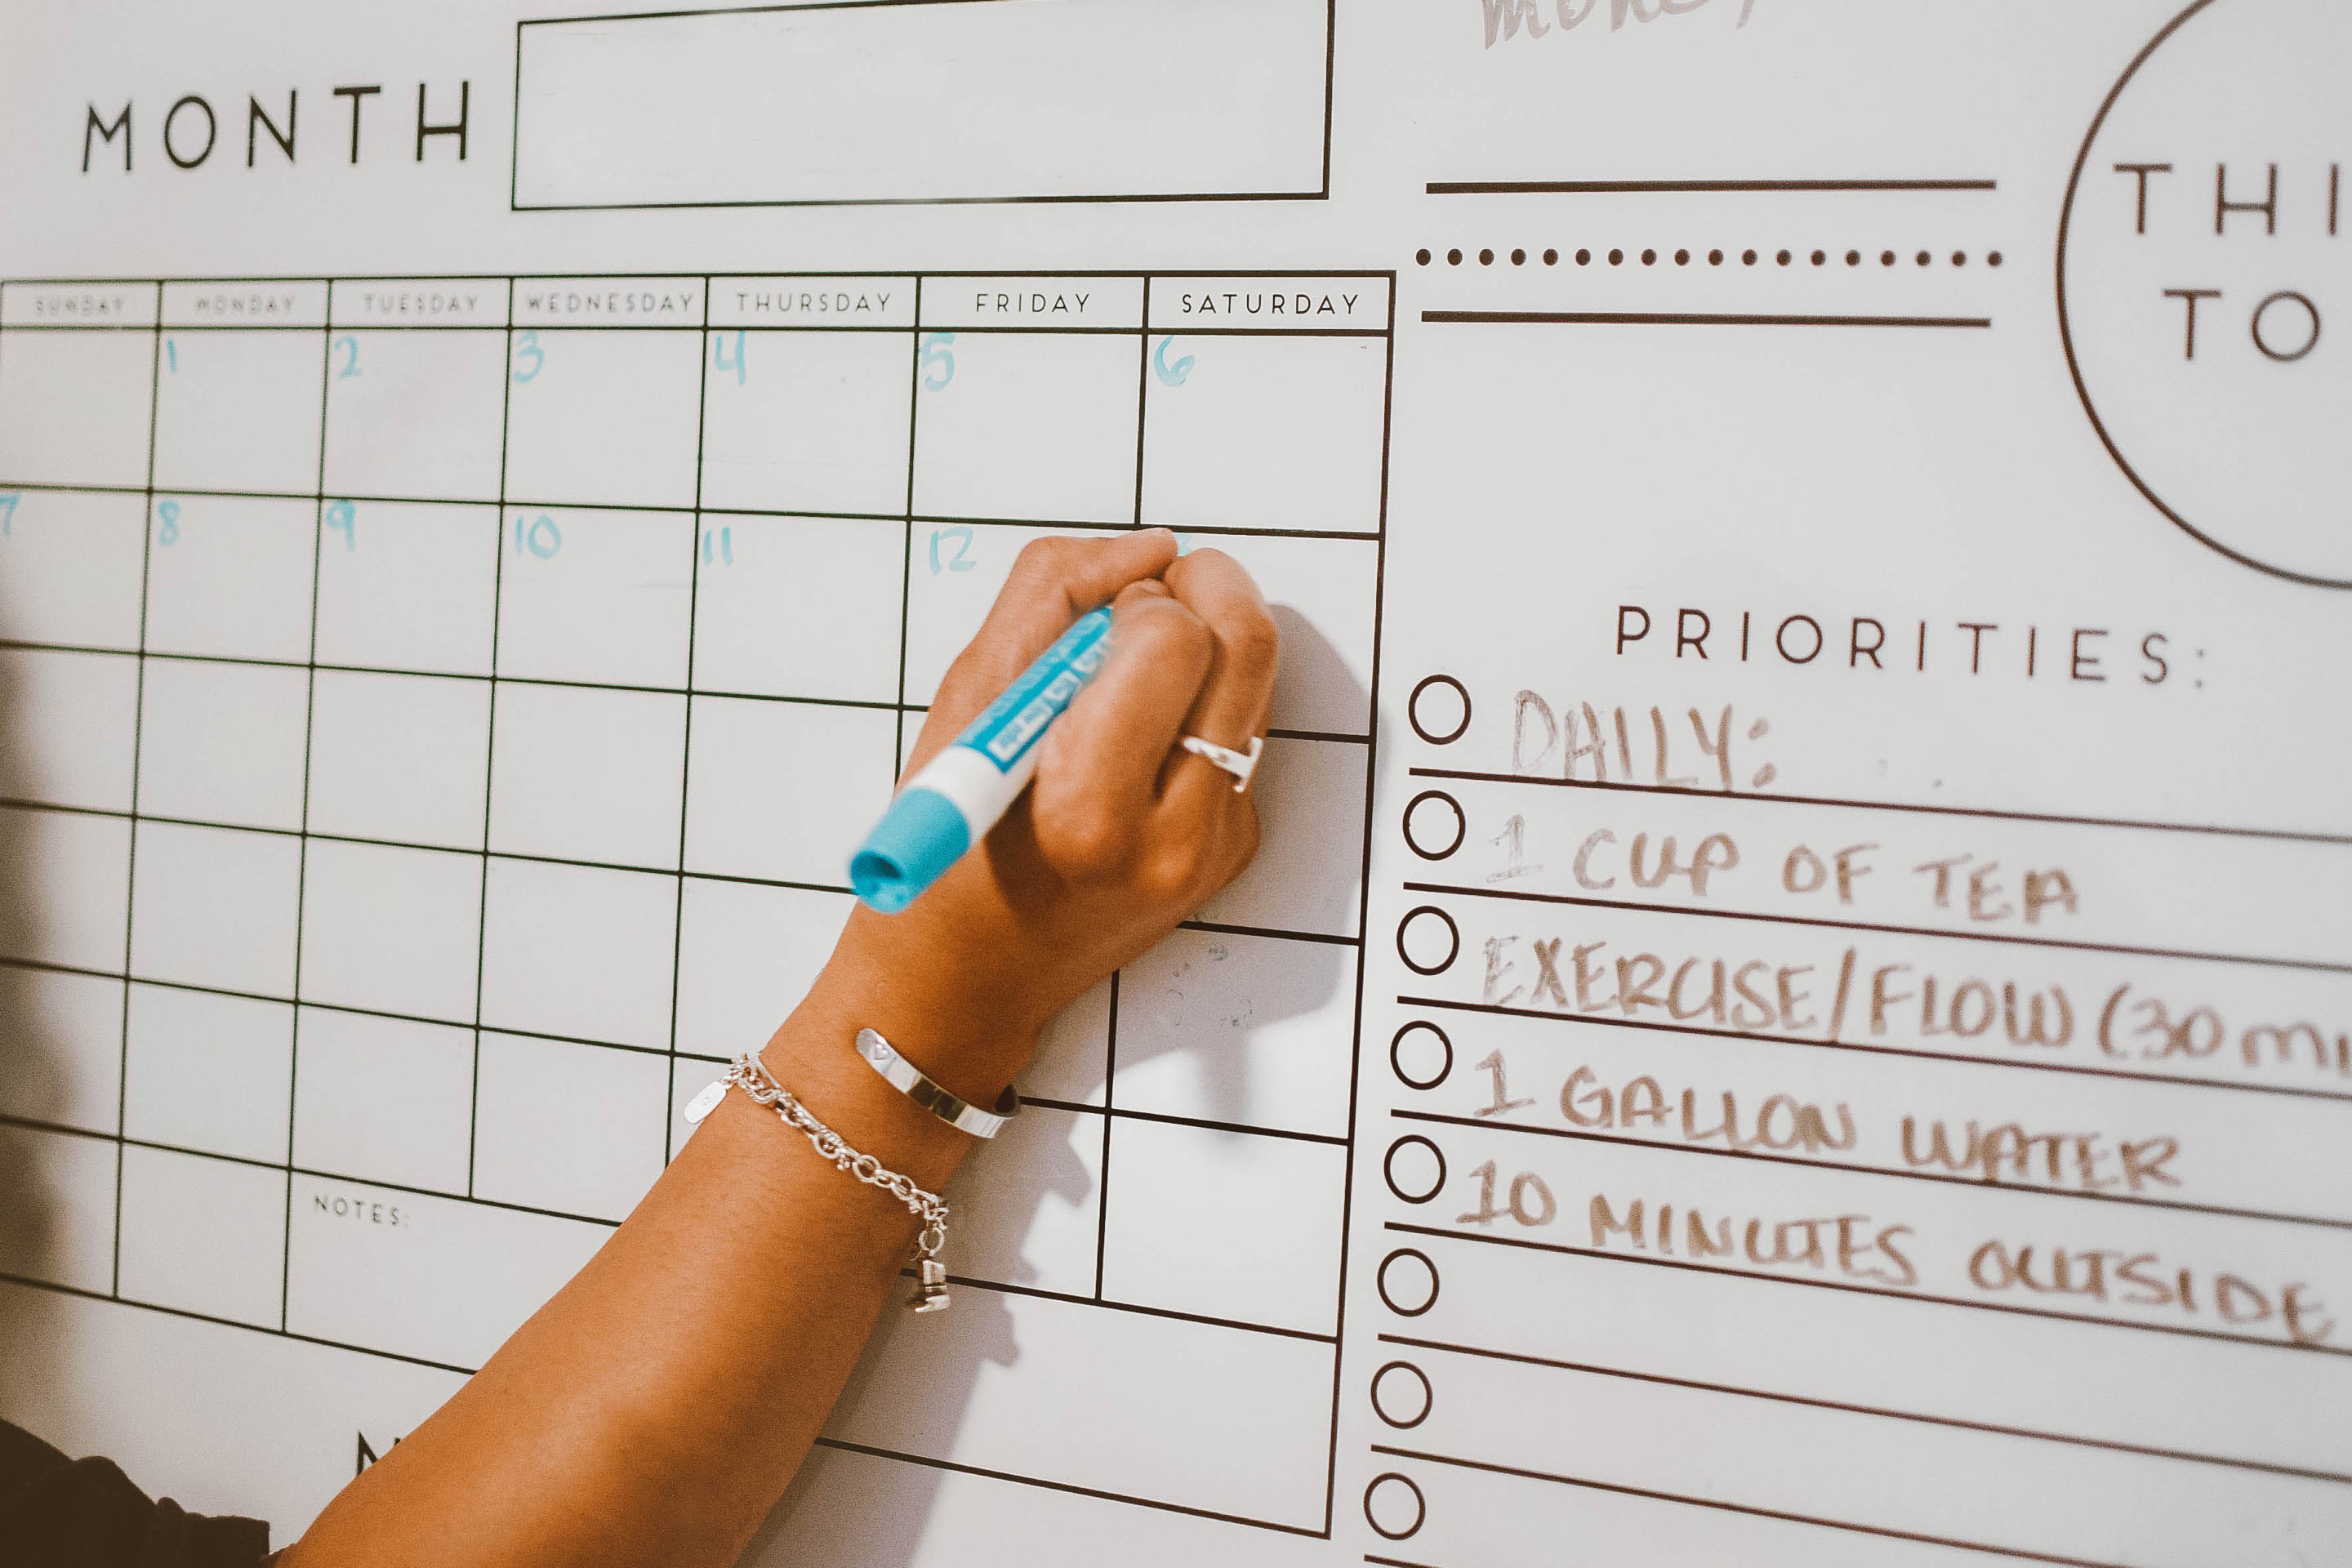 MONTH
SUNDAY MONDAY TUESDAY WEDNESDAY THURSDAY FRIDAY SATURDAY
1 2 3 4 5 6
7 8 9 10 11 12
NOTES:
THI
TO
PRIORITIES:
DAILY:
1 CUP OF TEA
EXERCISE/FLOW (30 MI
1 GALLON WATER
10 MINUTES OUTSIDE